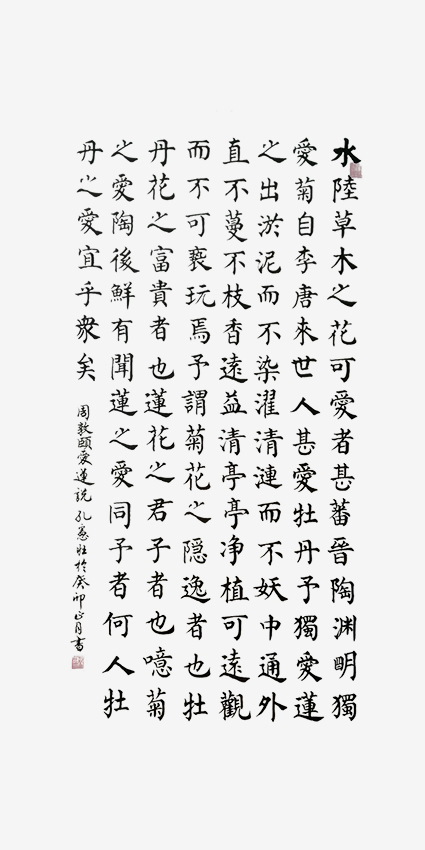 水陸草木之花可愛者甚蕃晉陶渊明獨
愛菊自李唐來世人甚愛牡丹予獨愛蓮
之出淤泥而不染濯清漣而不妖中通外
直不蔓不枝香遠益清亭亭净植可遠觀
而不可褻玩焉予謂菊花之隐逸者也牡
丹花之富貴者也蓮花之君子者也噫菊
之愛陶後鮮有聞蓮之愛同予者何人牡
丹之愛宜乎衆矣
周敦頤愛蓮說 孔憲壯於癸卯正月書